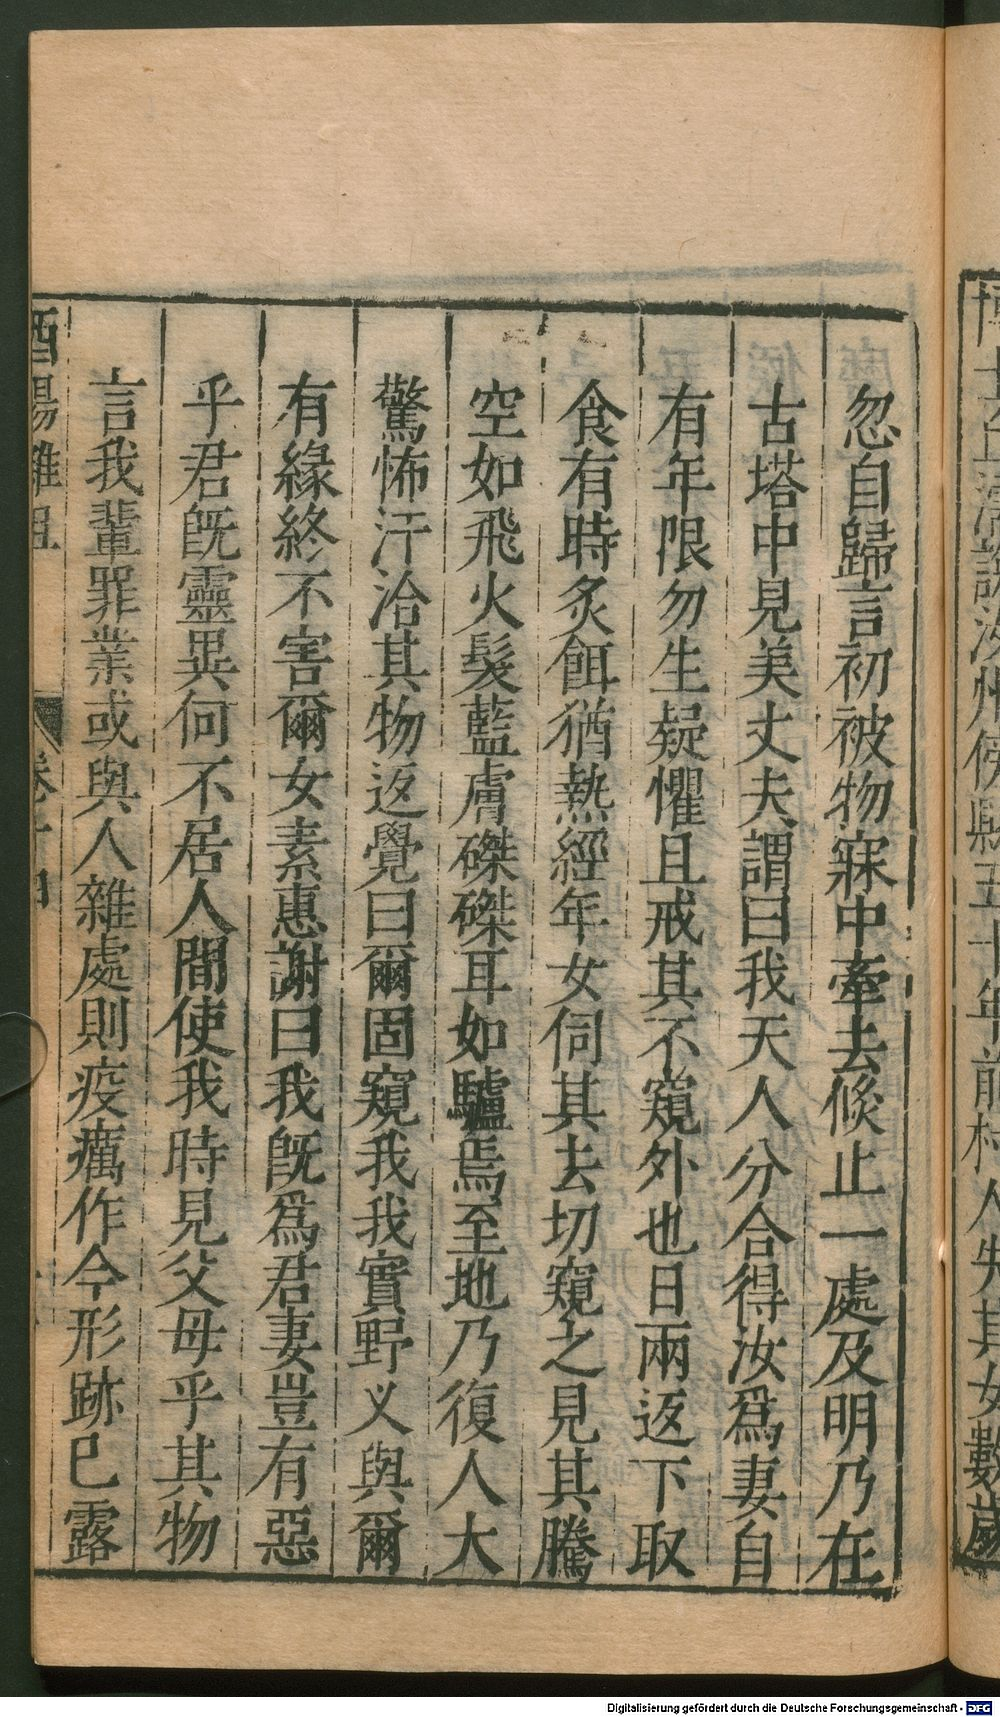 博士丘濡說汝州傍縣五十年前村人失其女數歲
忽自歸言初被物寐中牽去倐止一處及明乃在
古塔中見美丈夫謂曰我天人分合得汝爲妻自
有年限勿生疑懼且戒其不窺外也日兩返下取
食有時炙餌猶熱經年女伺其去切窺之見其騰
空如飛火髮藍膚磔磔耳如驢焉至地乃復人大
驚怖汗洽其物返覺曰爾固窺我我實野义與爾
有緣終不害爾女素惠謝曰我旣爲君妻豈有惡
乎君旣靈異何不居人間使我時見父母乎其物
言我輩罪業或與人雜處則疫癘作今形跡已露
酉陽雜俎 卷十四
Digitalisierung gefördert durch die Deutsche Forschungsgemeinschaft - DFG